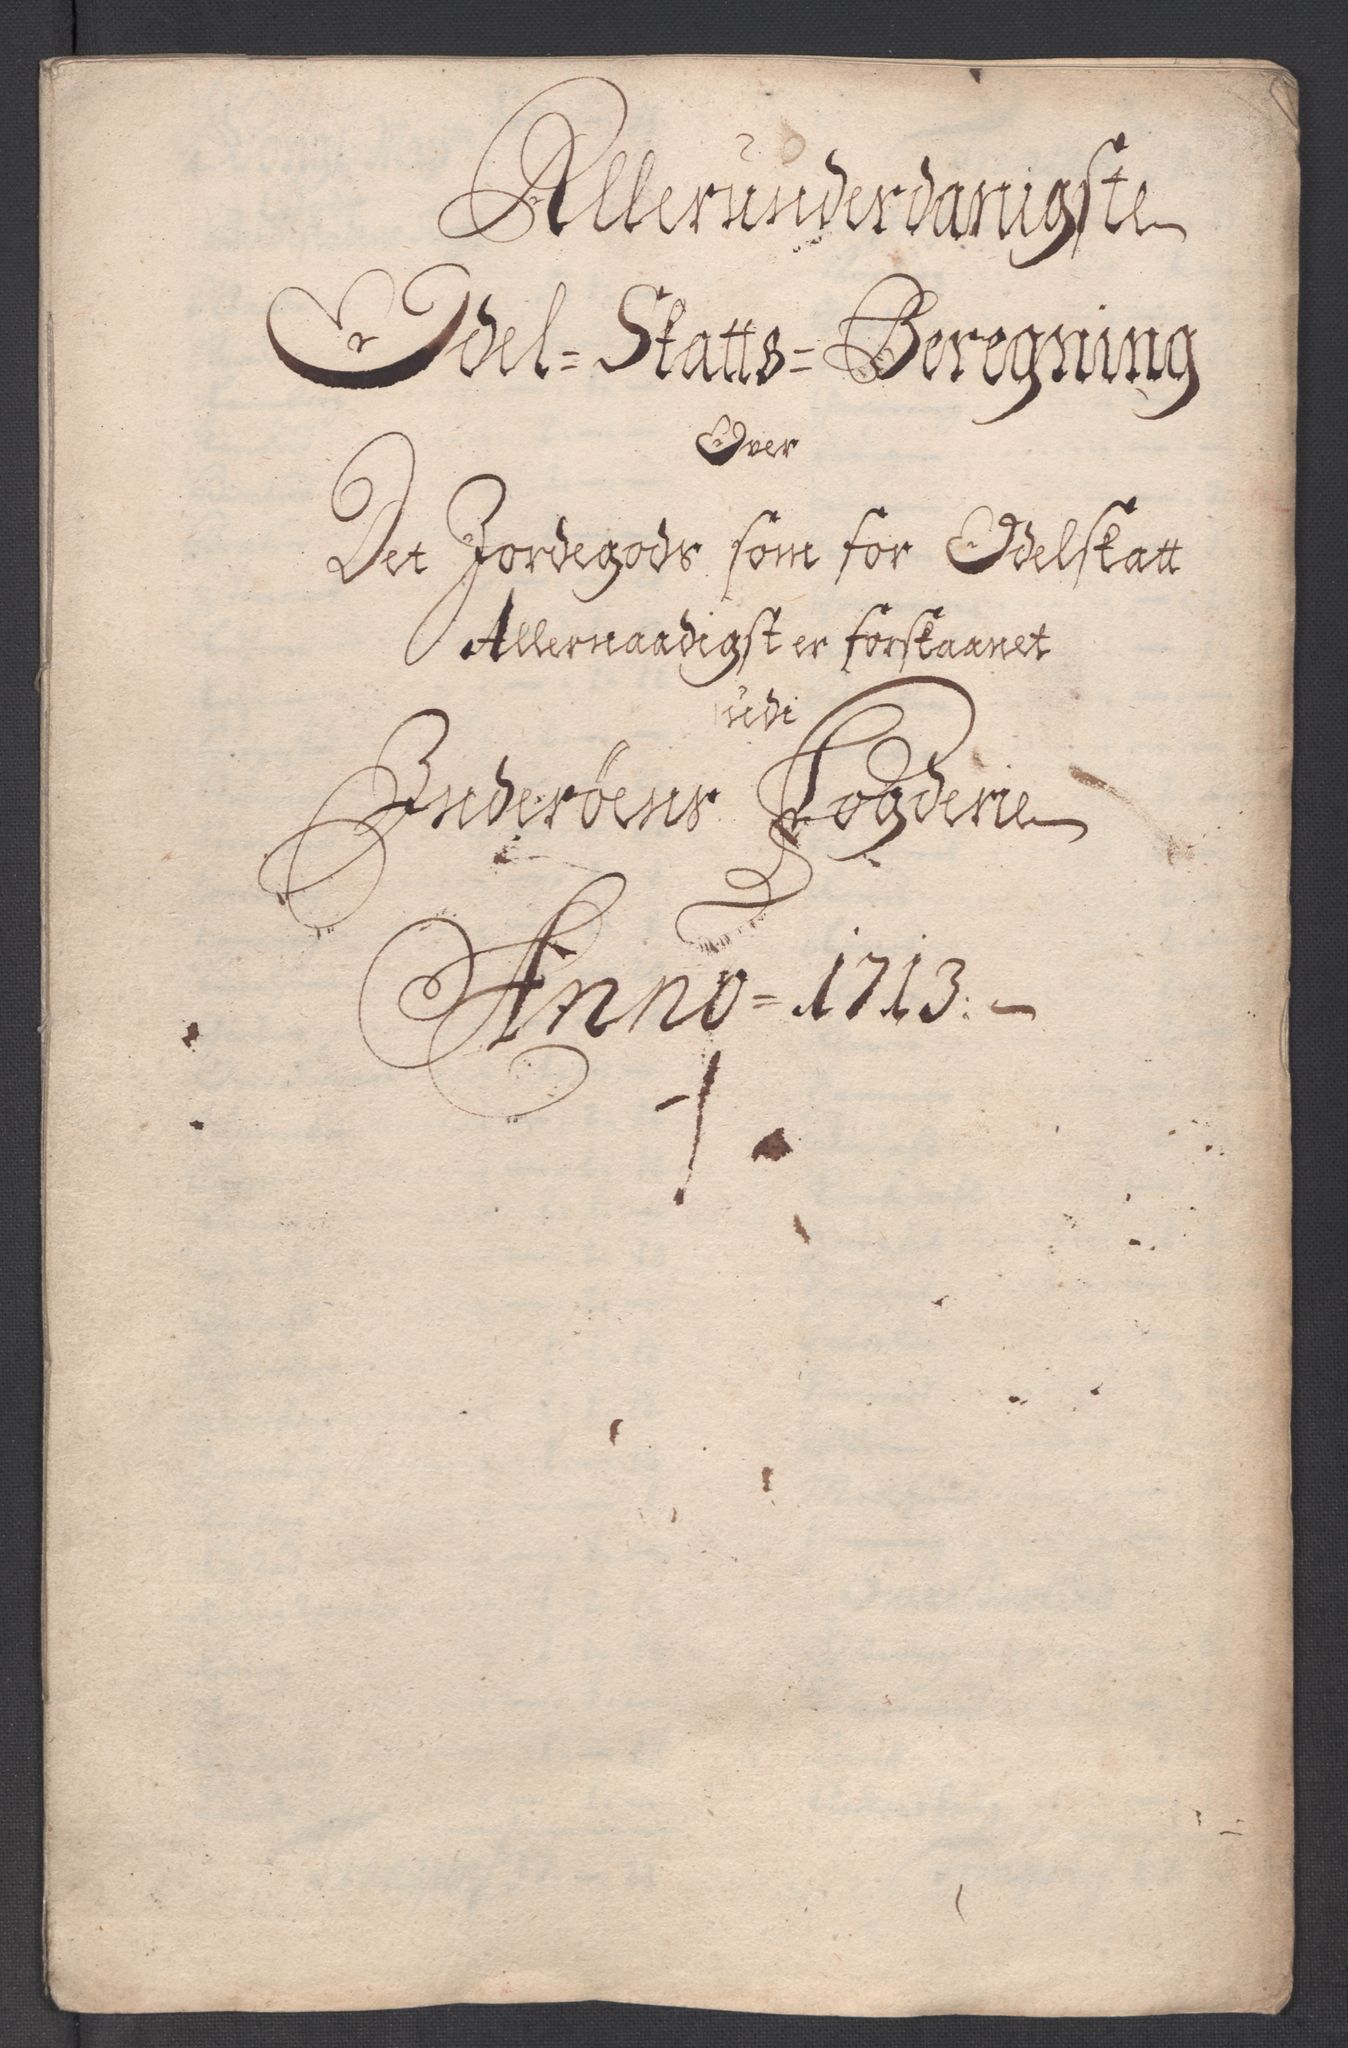 Allerunderdanigste
Odel=Skatts=Beregning
Over
Det Jordegods som for Odelskatt
Allernaadigst er forskaanet
udi
Inderöens Fogderie
Anno=1713.